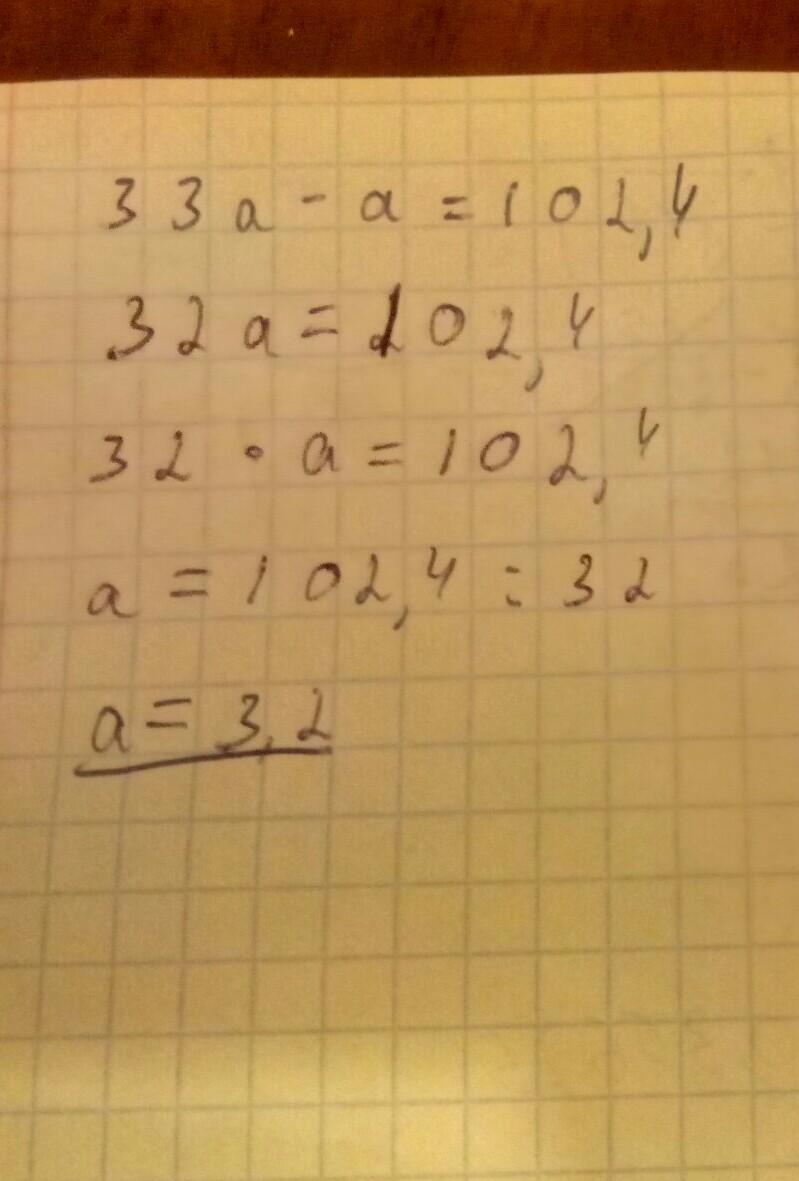 33a - a = 102,4
32a = 102,4
32 · a = 102,4
a = 102,4 : 32
a = 3,2